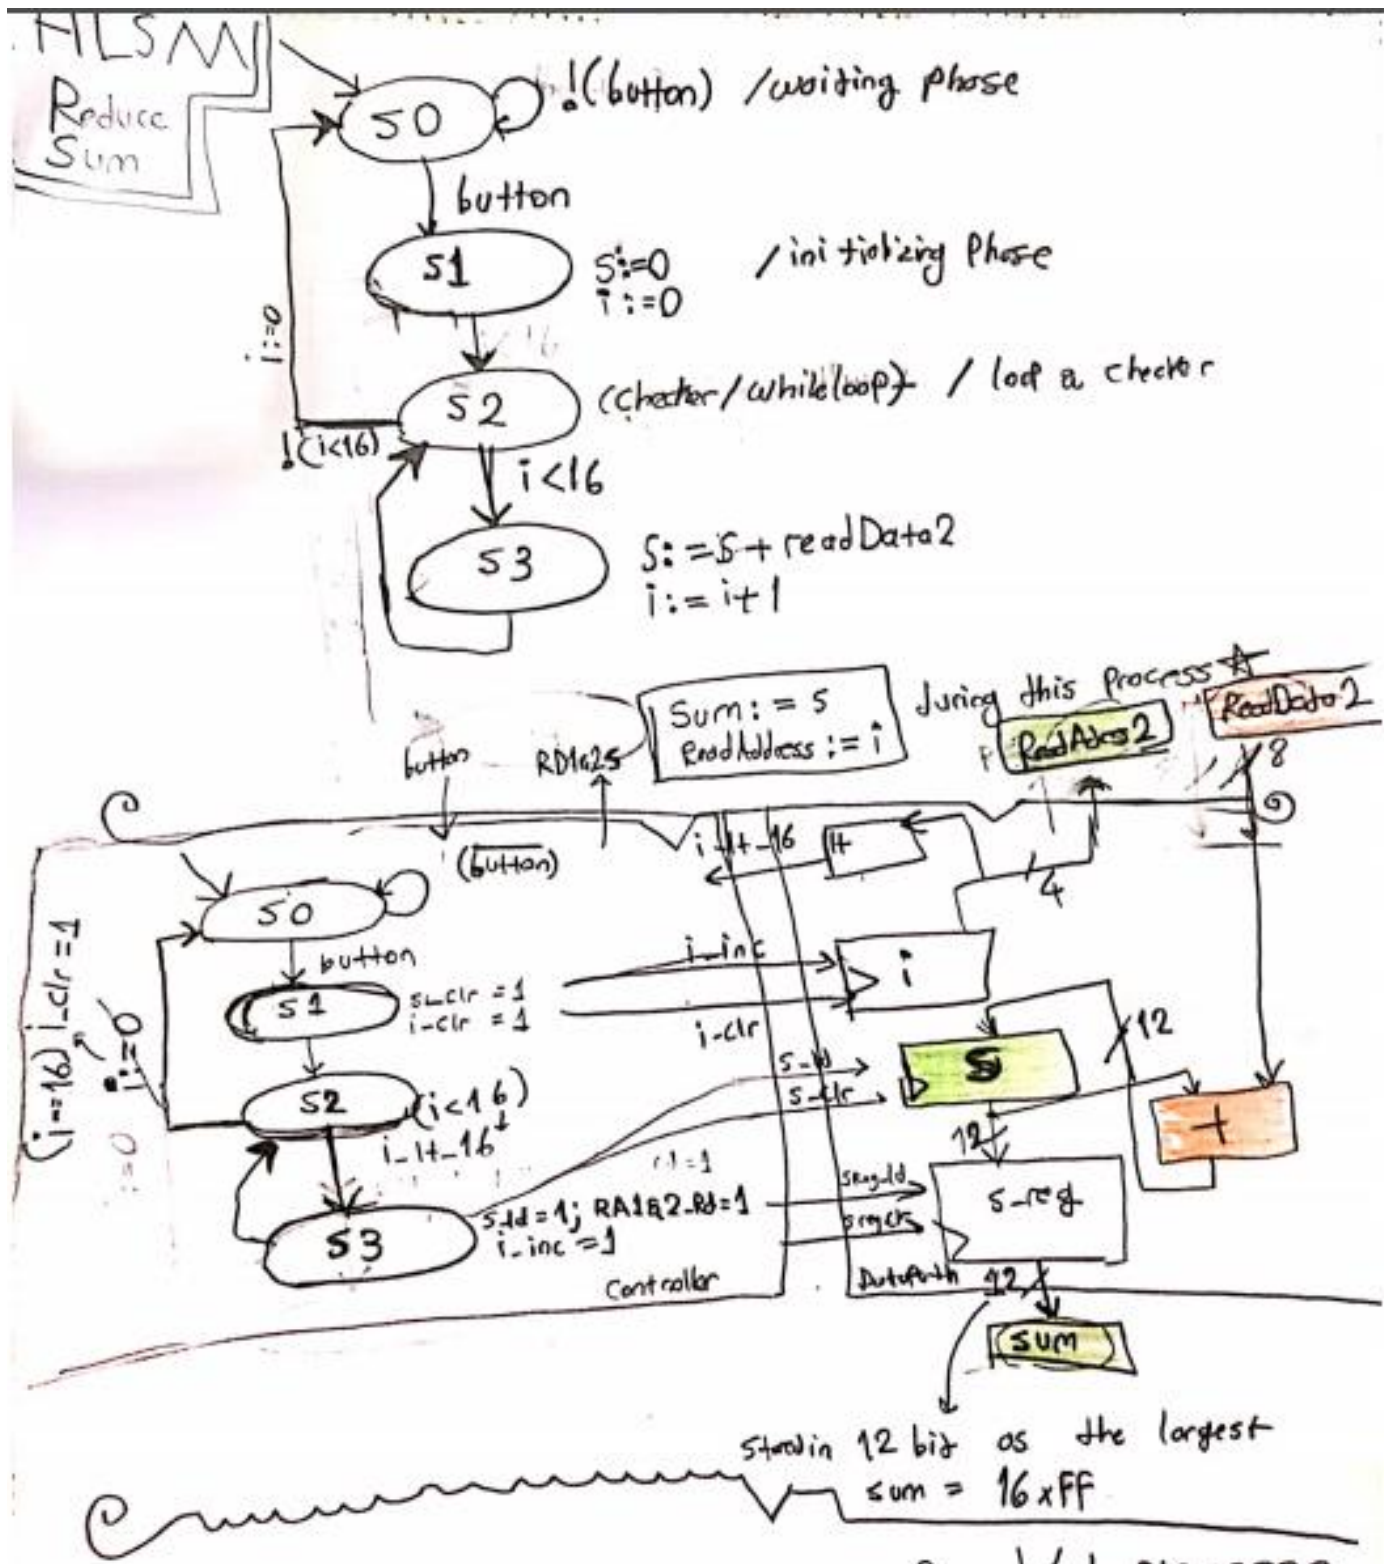 HLSM
Reduce
Sum
S0
!(button) /waiting phase
button
S1
S:=0 /initializing Phase
i:=0
i:=0
S2
(checker/while loop) / loop & checker
!(i<16)
i<16
S3
S:=S+readData2
i:=i+1
Sum:=S
ReadAddress:=i
during this process
ReadAdress2
ReadData2
8
button
(button)
i_lt_16
lt
4
S0
button
S1
s_clr = 1
i_clr = 1
(i==16) i_clr = 1
i:=0
S2
(i<16)
i_lt_16
S3
s_ld = 1; RA1&2_Rd=1
i_inc = 1
Controller
i_inc
i
i_clr
s_ld
s_clr
S
12
+
12
s_reg
Datapath
12
sum
Stored in 12 bit as the largest
sum = 16xFF